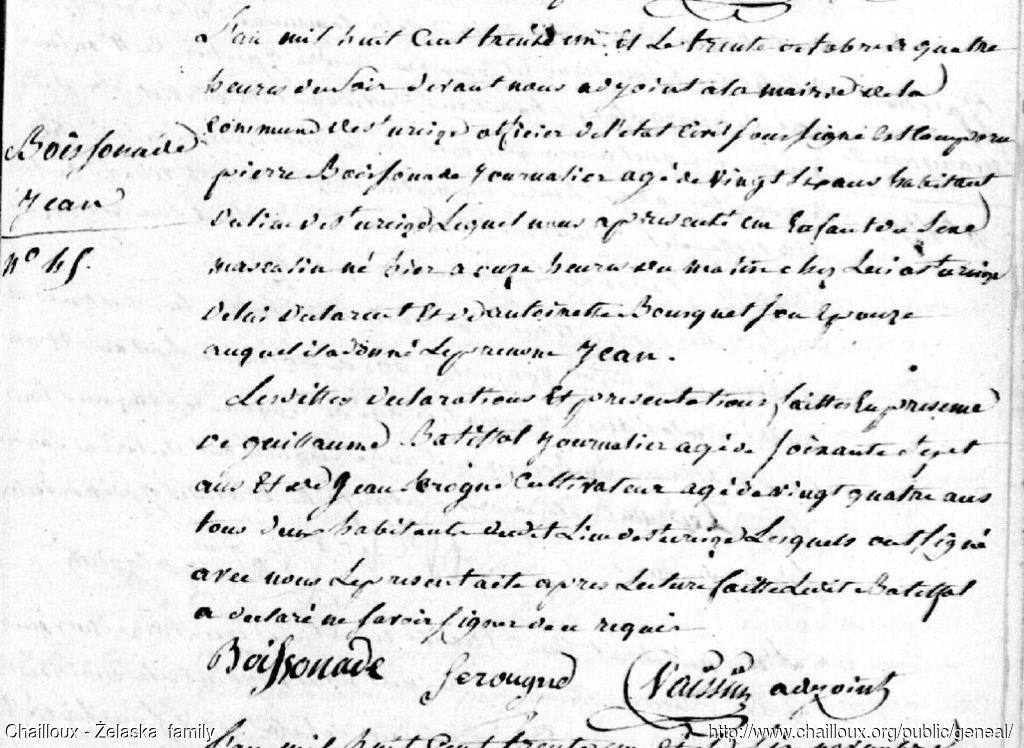 L'an mil huit Cent trente un Et Le trente octobre a quatre
heures du Soir devant nous adjoint a la mairie de la
Commune de St urcize officier de l'etat Civil Soussigné Est Comparu
pierre Boissonade Journalier agé de vingt Six ans habitant
Boissonade
Jean
N° 45.
du lieu de St urcize Lequel nous a presenté un Enfant du Sexe
masculin né hier a onze heures du matin chez Lui a St urcize
de lui declarant Et d'antoinette Bousquet Son Epouze
auquel il a donné Le prenom Jean.
Lesdittes declarations Et presentations faittes En presence
de guillaume Batiffol Journalier agé de soixante Sept
ans Et de Jean Cultivateur agé de vingt quatre ans
tous deux habitants dudit Lieu de St urcize Lesquels ont Signé
avec nous Le present acte apres Lecture faitte Ledit Batiffol
a declaré ne Savoir Signer de ce requis
Boissonade adjoint
L'an mil huit Cent trente un et
Chailloux - Żelaska family
http://www.chailloux.org/public/geneal/